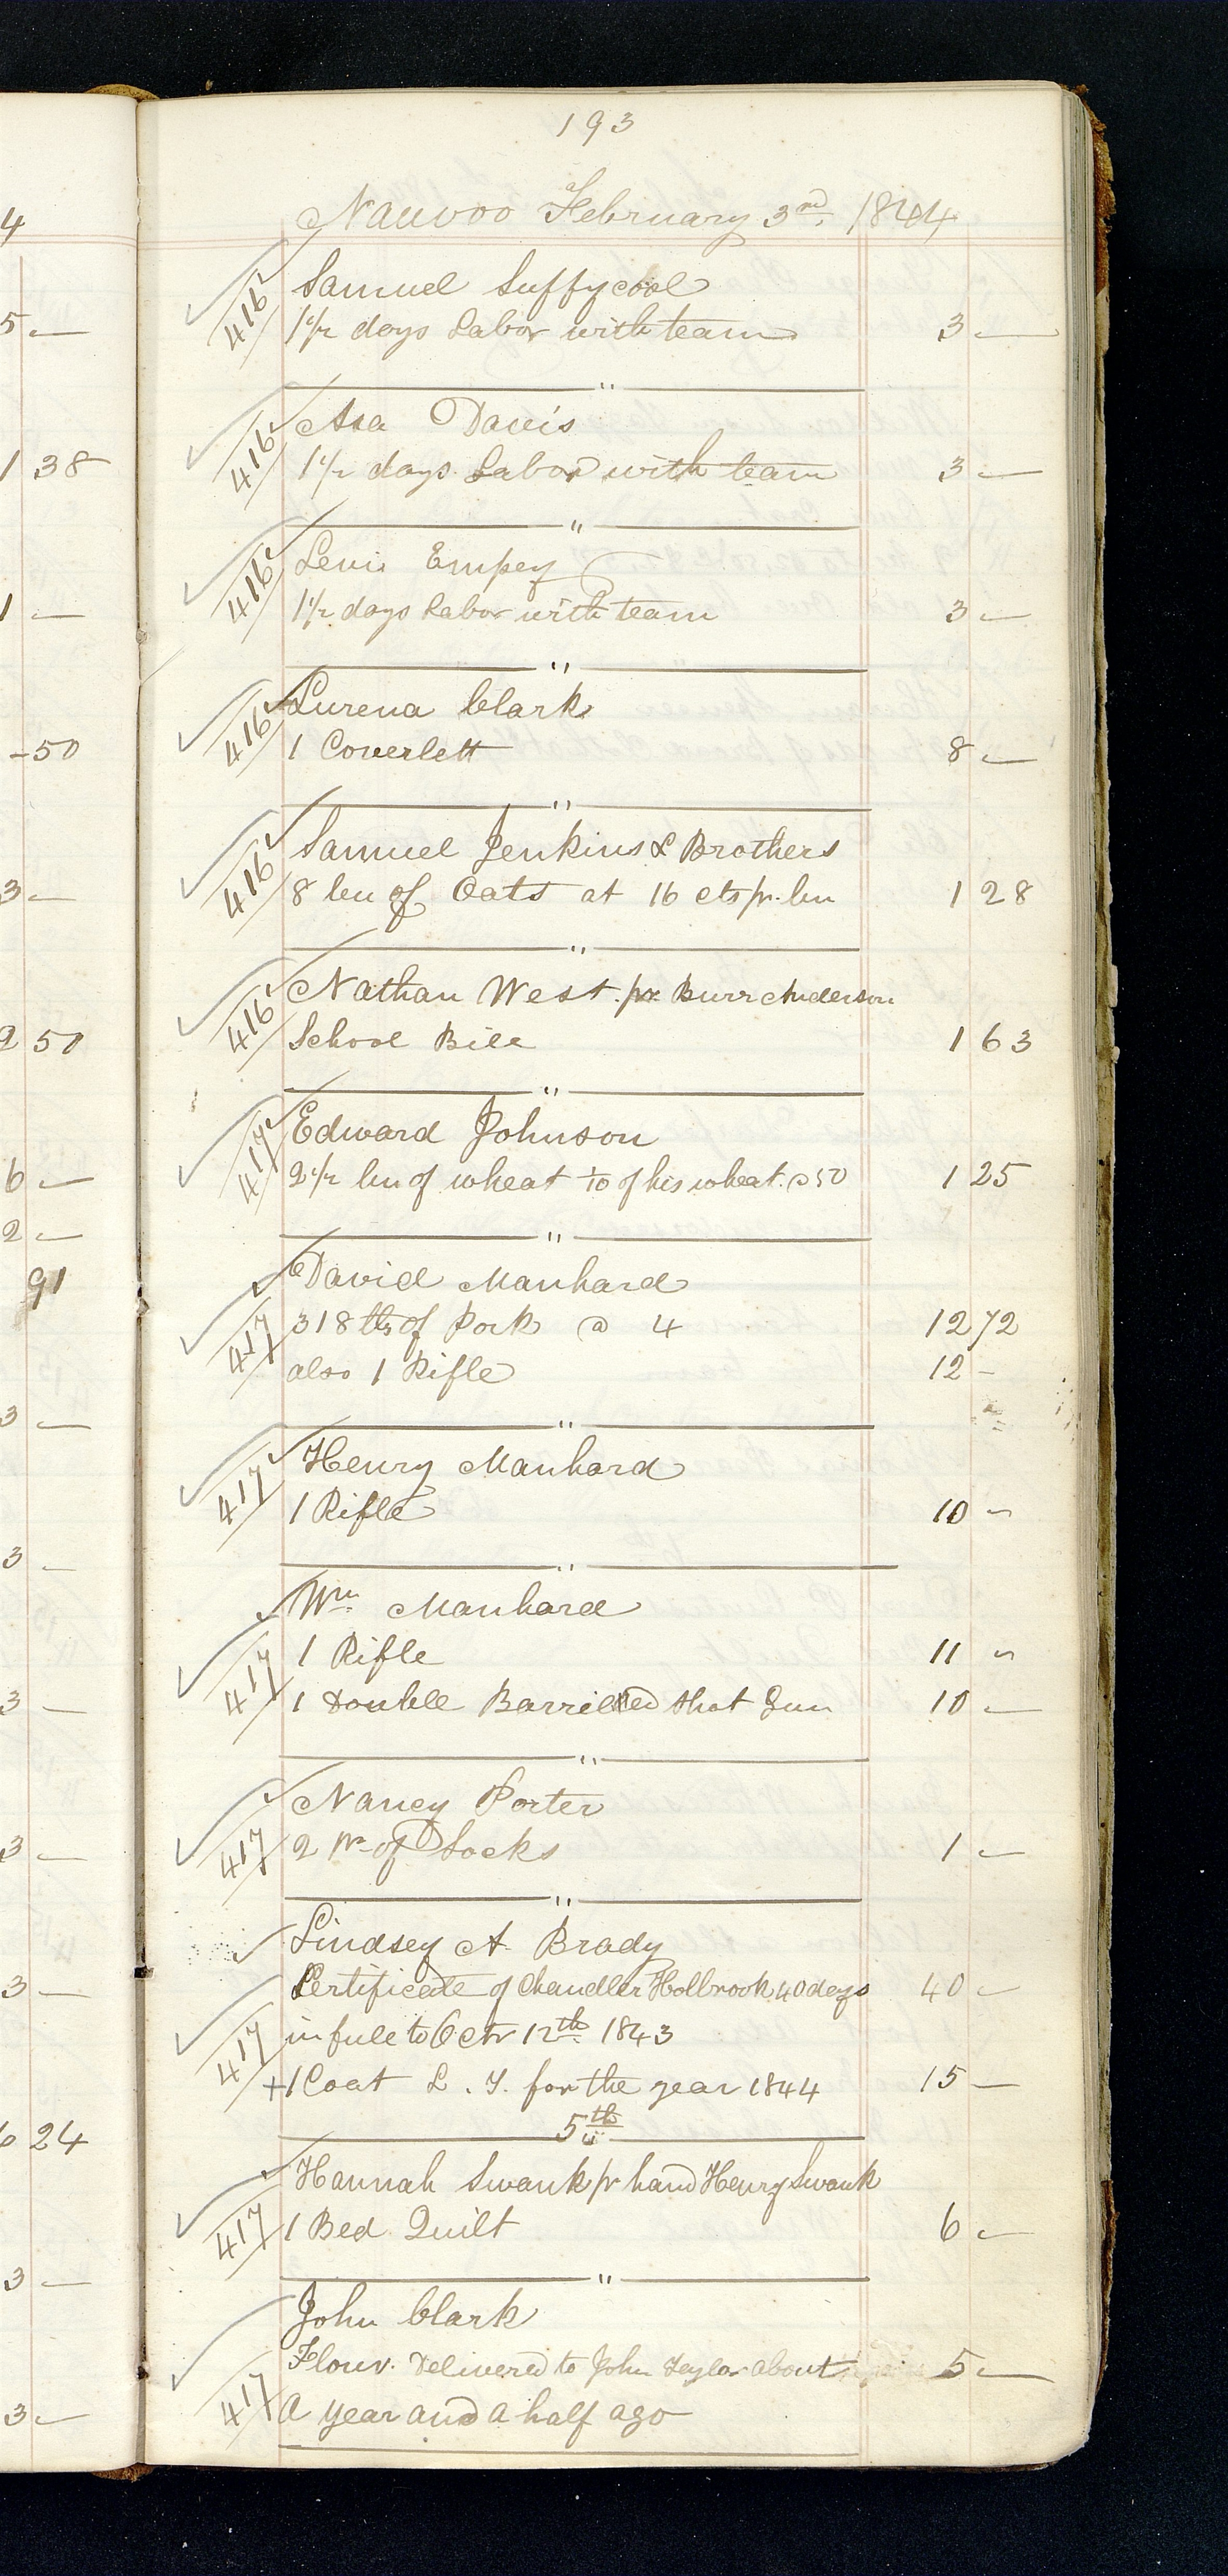 193
Nauvoo February 3rd. 1844
4
416 Samuel Suffycool
5 — 1 1/2 days Labor with team 3 —
"
416 Asa Davis
1 38 1 1/2 days Labor with team 3 —
"
416 Levi Empey
1 — 1 1/2 days Labor with team 3 —
"
416 Lurena Clark
-50 1 Coverlett 8 —
"
416 Samuel Jenkins & Brothers
3 — 8 bu of Oats at 16 cts pr. bu 1 28
"
416 Nathan West. pr Burr Anderson
2 50 School Bill 1 63
"
417 Edward Johnson
6 — 2 1/2 bu of wheat 1/10 of his wheat. @ 50 1 25
2 — "
91 David Manhard
417 318 lbs of Pork @ 4 12 72
also 1 Rifle 12 -
3 — "
417 Henry Manhard
1 Rifle 10 —
3 — "
Wm. Manhard
417 1 Rifle 11 "
3 — 1 Double Barrilled Shot Gun 10 —
"
Nancy Porter
3 — 417 2 pr of Socks 1 —
"
Lindsey A. Brady
3 — Certificate of Chandler Holbrook 40 days 40 —
417 in full to Octr 12th. 1843
+ 1 Coat L. T. for the year 1844 15 —
24 5th
Hannah Swank pr hand Henry Swank
417 1 Bed Quilt 6 —
3 — "
John Clark
Flour. Delivered to John Taylor about 5 —
3 — 417 a year and a half ago